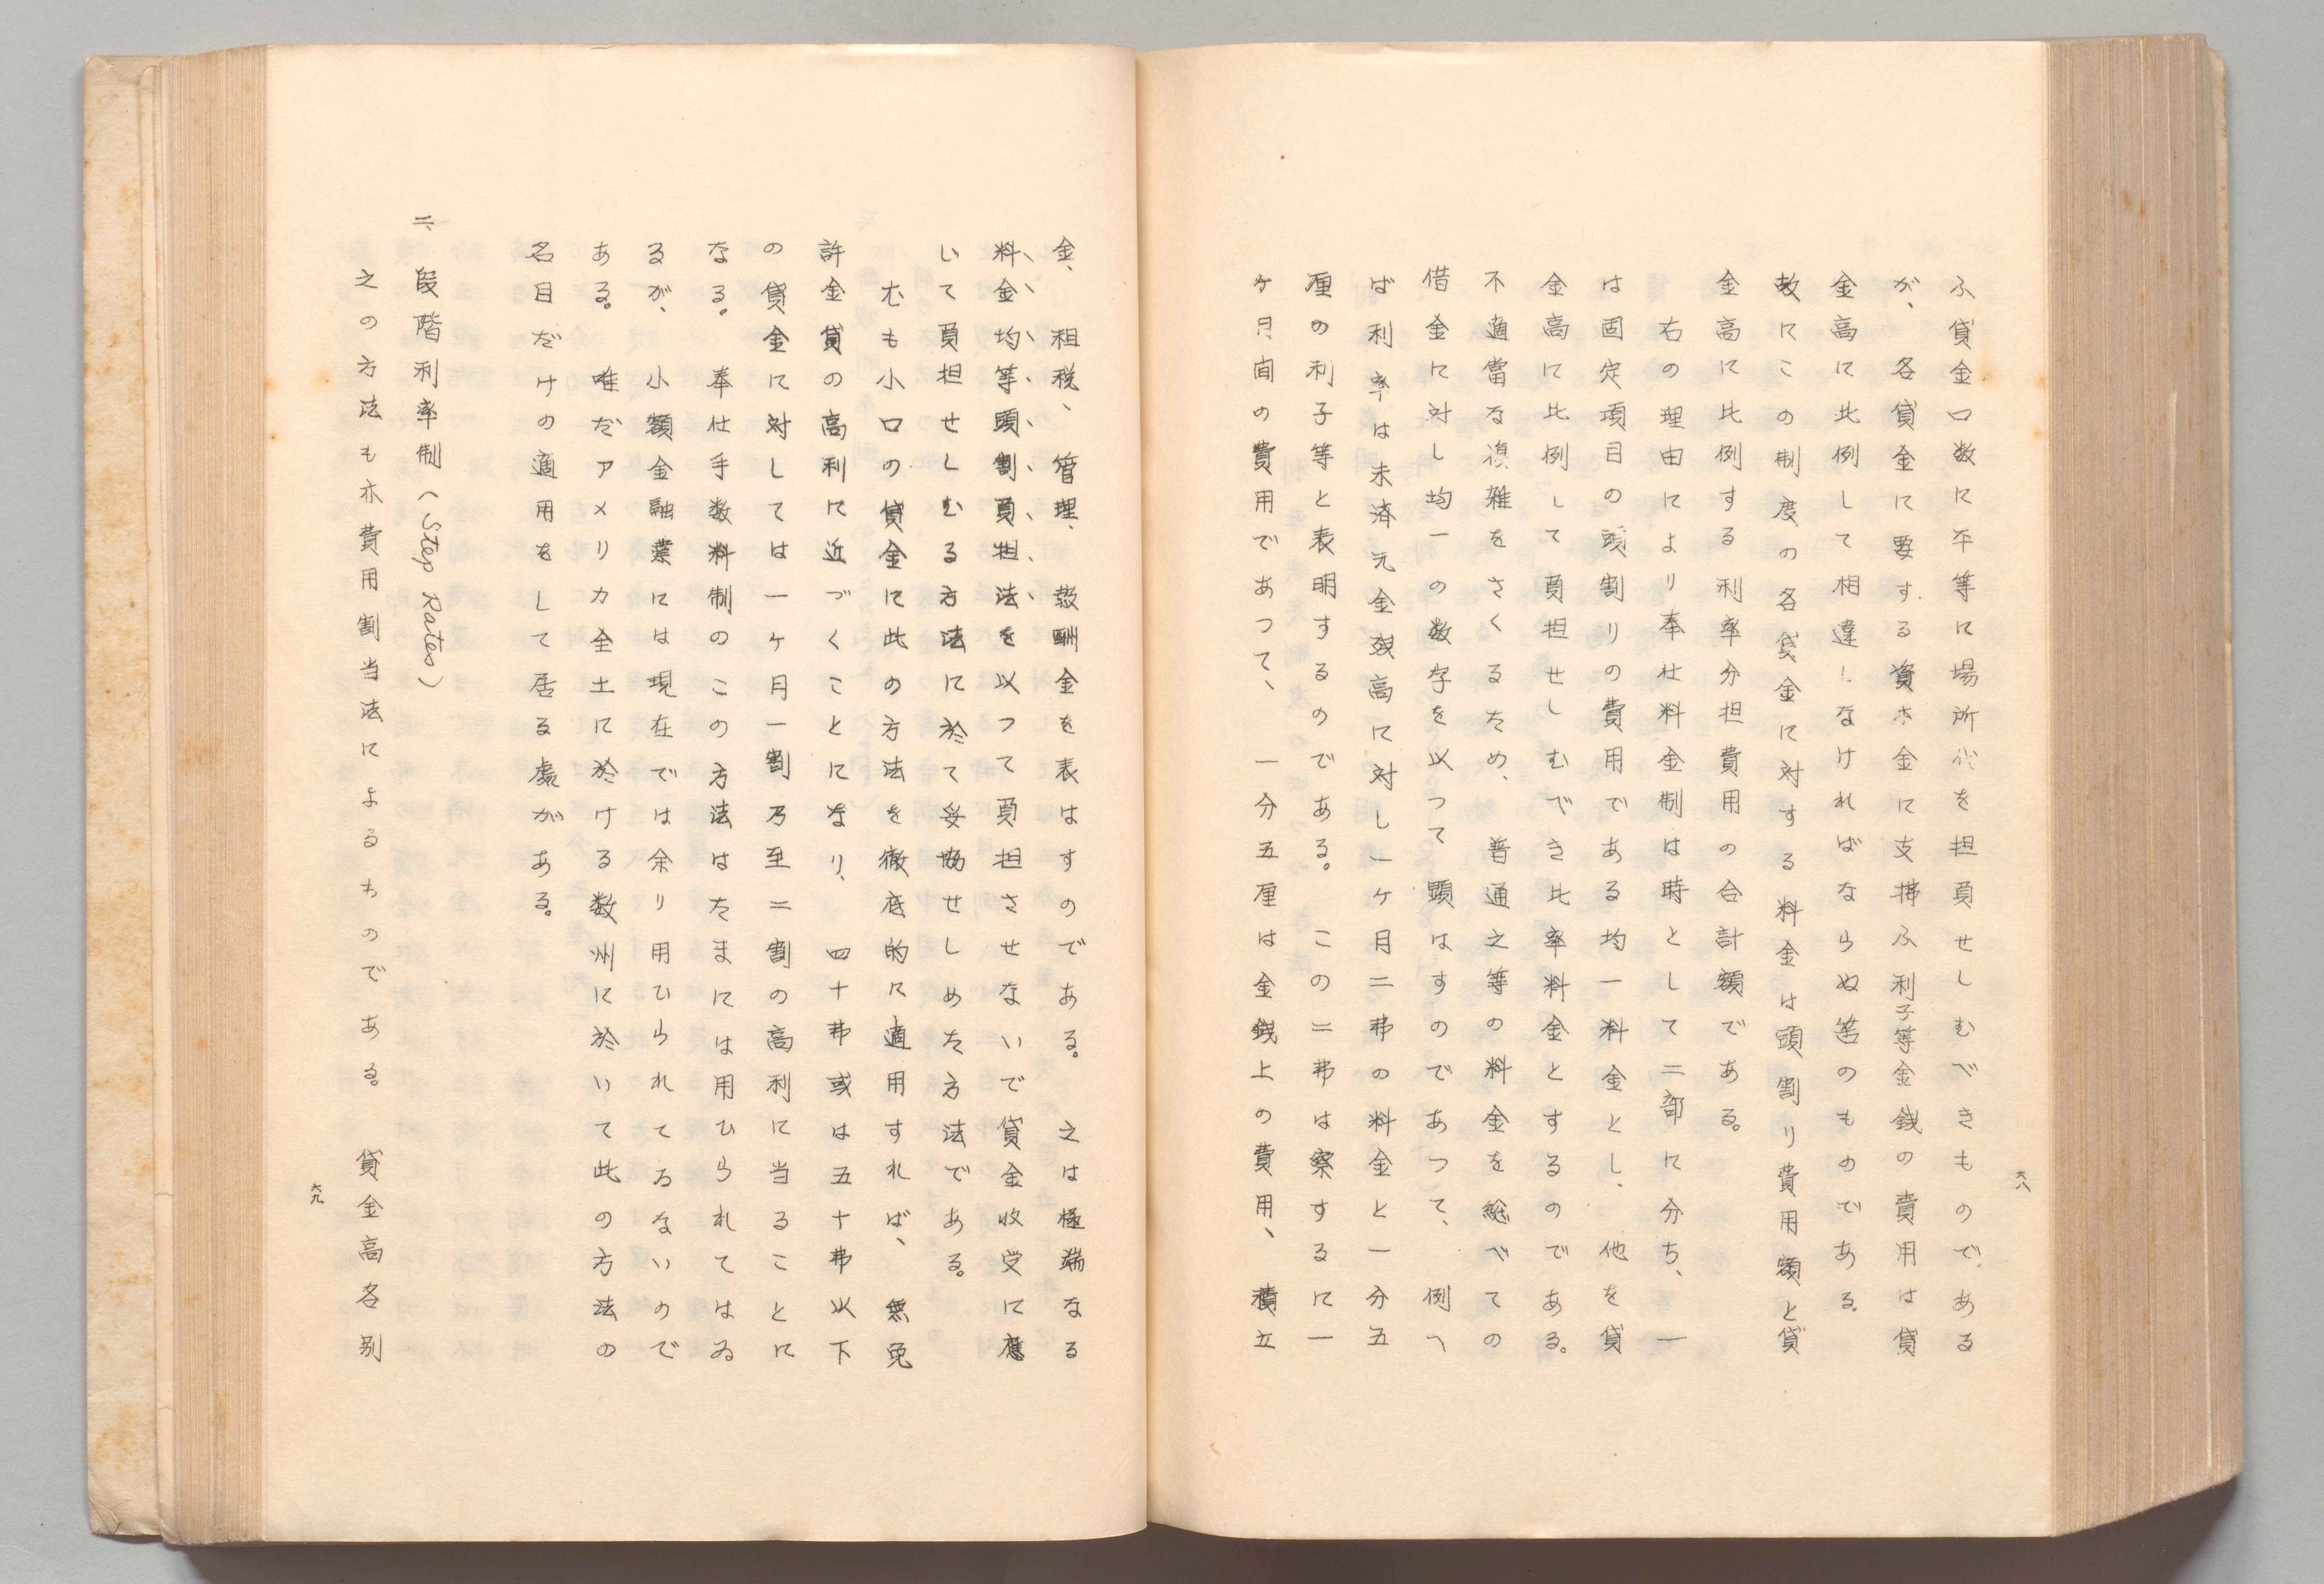 ふ貸金口数に平等に場所代を担負せしむべきものである
が、各貸金に要する資本金に支拂ふ利子等金銭の費用は貸
金高に比例して相違しなければならぬ筈のものである。
故にこの制度の各貸金に対する料金は頭割り費用額と貸
金高に比例する利率分担費用の合計額である。
右の理由により奉仕料金制は時として二部に分ち、一
は固定項目の頭割りの費用である均一料金とし、他を貸
金高に比例して負担せしむべき比率料金とするのである。
不適當な復雑をさくるため、普通之等の料金を総べての
借金に対し均一の数字を以つて顕はすのであつて、例へ
ば利率は未済元金残高に対し一ヶ月二弗の料金と一分五
厘の利子等と表明するのである。この二弗は察するに一
ヶ月間の費用であつて、一分五厘は金銭上の費用、積立
六八
金、租税、管理、報酬金を表はすのである。之は極端なる
料金均等頭割負担法を以つて負担させないで貸金收受に應
いて負担せしむる方法に於て妥協せしめた方法である。
尤も小口の貸金に此の方法を徹底的に適用すれば、無免
許金貸の高利に近づくことになり、四十弗或は五十弗以下
の貸金に対しては一ヶ月一割乃至二割の高利に当ることに
なる。奉仕手数料制のこの方法はたまには用ひられてはゐ
るが、小額金融業には現在では余り用ひられてゐないので
ある。唯だアメリカ全土に於ける数州に於いて此の方法の
名目だけの適用をして居る處がある。
二、段階利率制（Step Rates）
之の方法も亦費用割当法によるものである。貸金高各別
六九